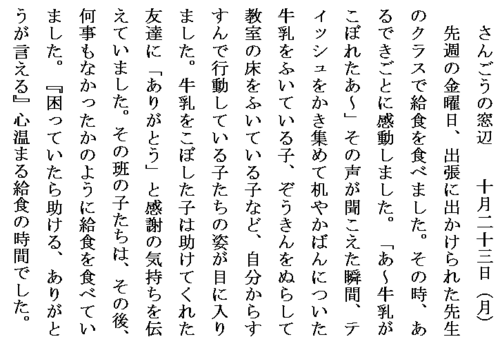 さんごうの窓辺　　十月二十三日（月）
　先週の金曜日、出張に出かけられた先生
のクラスで給食を食べました。その時、あ
るできごとに感動しました。「あ～牛乳が
こぼれたあ～」その声が聞こえた瞬間、テ
ィッシュをかき集めて机やかばんについた
牛乳をふいている子、ぞうきんをぬらして
教室の床をふいている子など、自分からす
すんで行動している子たちの姿が目に入り
ました。牛乳をこぼした子は助けてくれた
友達に「ありがとう」と感謝の気持ちを伝
えていました。その班の子たちは、その後、
何事もなかったかのように給食を食べてい
ました。『困っていたら助ける、ありがと
うが言える』心温まる給食の時間でした。